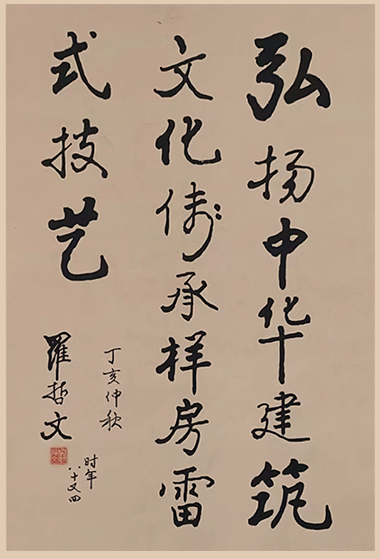 弘扬中华建筑
文化传承样房雷
式技艺
丁亥仲秋
羅哲文
时年
八十又四